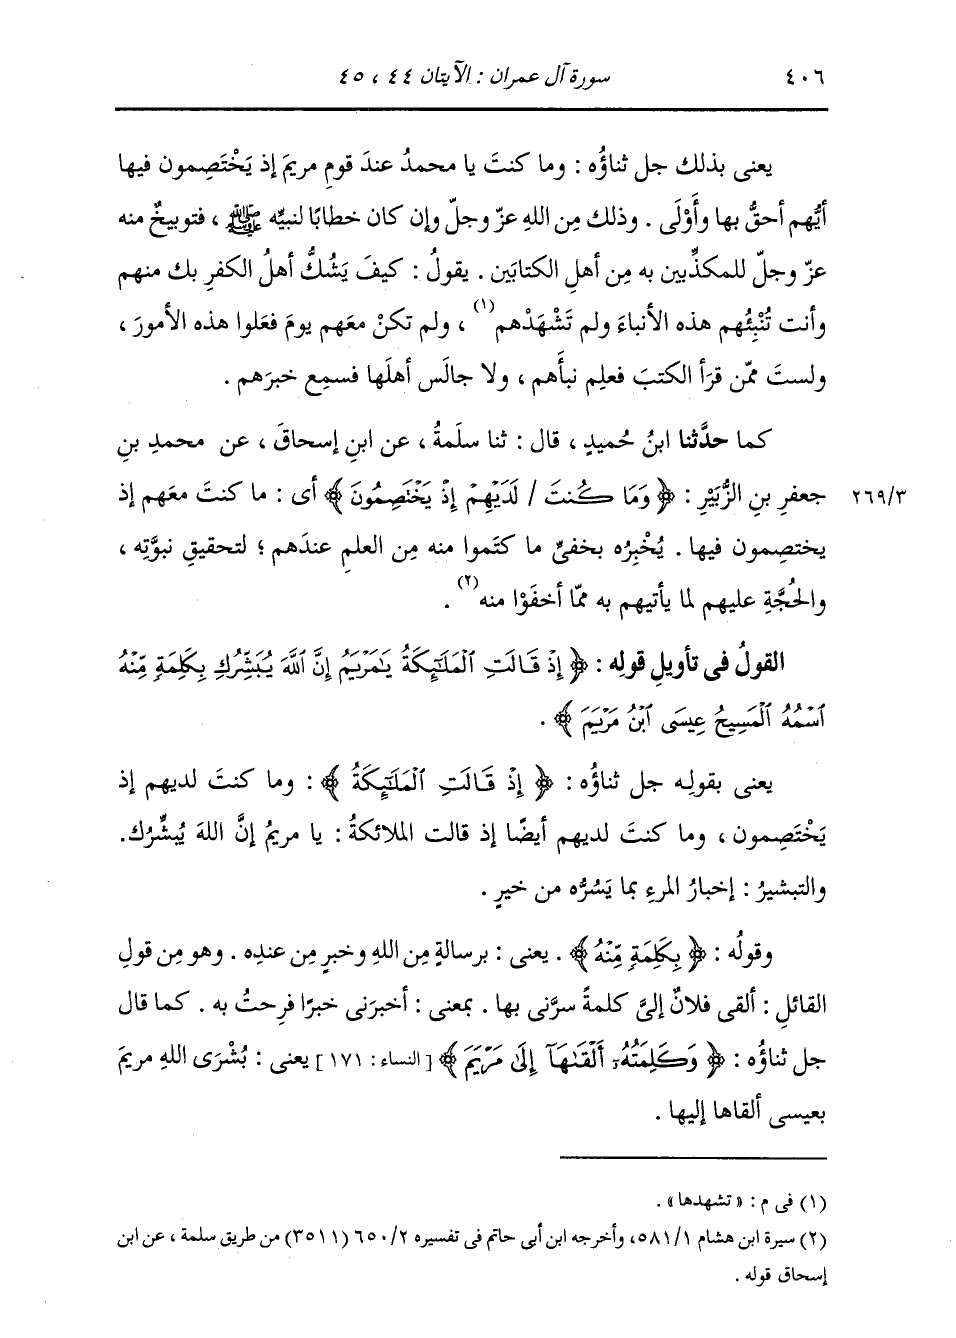 ٤٠٦ سورة آل عمران : الآيتان ٤٤ ، ٤٥
يعنى بذلك جل ثناؤُه : وما كنتَ يا محمدُ عندَ قومِ مريمَ إذ يَخْتَصِمون فيها
أيُّهم أحقُّ بها وأَوْلَى . وذلك مِن اللهِ عزّ وجلّ وإن كان خطابًا لنبيِّه ﷺ ، فتوبيخٌ منه
عزّ وجلّ للمكذِّبين به مِن أهلِ الكتابَين . يقولُ : كيفَ يَشُكُّ أهلُ الكفرِ بك منهم
وأنت تُنْبِئُهم هذه الأنباءَ ولم تَشْهَدْهم(١) ، ولم تكنْ معَهم يومَ فعَلوا هذه الأمورَ ،
ولستَ ممّن قرَأ الكتبَ فعلِم نبأَهم ، ولا جالَس أهلَها فسمِع خبرَهم .
كما حدَّثنا ابنُ حُميدٍ ، قال : ثنا سلَمةُ ، عن ابنِ إسحاقَ ، عن محمدِ بنِ
٢٦٩/٣ جعفرِ بنِ الزُّبَيْرِ : ﴿ وَمَا كُنتَ / لَدَيْهِمْ إِذْ يَخْتَصِمُونَ ﴾ أى : ما كنتَ معَهم إذ
يختصِمون فيها . يُخْبِرُه بخفىِّ ما كتَموا منه مِن العلمِ عندَهم ؛ لتحقيقِ نبوَّتِه ،
والحُجَّةِ عليهم لما يأتيهم به ممّا أخفَوْا منه(٢) .
القولُ فى تأويلِ قولِه : ﴿ إِذْ قَالَتِ ٱلْمَلَٰٓئِكَةُ يَٰمَرْيَمُ إِنَّ ٱللَّهَ يُبَشِّرُكِ بِكَلِمَةٍ مِّنْهُ
ٱسْمُهُ ٱلْمَسِيحُ عِيسَى ٱبْنُ مَرْيَمَ ﴾ .
يعنى بقولِه جل ثناؤُه : ﴿ إِذْ قَالَتِ ٱلْمَلَٰٓئِكَةُ ﴾ : وما كنتَ لديهم إذ
يَخْتَصِمون ، وما كنتَ لديهم أيضًا إذ قالت الملائكةُ : يا مريمُ إنَّ اللهَ يُبشِّرُك.
والتبشيرُ : إخبارُ المرءِ بما يَسُرُّه من خيرٍ .
وقولُه : ﴿ بِكَلِمَةٍ مِّنْهُ ﴾ . يعنى : برسالةٍ مِن اللهِ وخبرٍ مِن عندِه . وهو مِن قولِ
القائلِ : ألقى فلانٌ إلىَّ كلمةً سرَّنى بها . بمعنى : أخبرَنى خبرًا فرِحتُ به . كما قال
جل ثناؤُه : ﴿ وَكَلِمَتُهُۥٓ أَلْقَىٰهَآ إِلَىٰ مَرْيَمَ ﴾ [ النساء : ١٧١ ] يعنى : بُشْرَى اللهِ مريمَ
بعيسى ألقاها إليها .
(١) فى م : « تشهدها » .
(٢) سيرة ابن هشام ٥٨١/١، وأخرجه ابن أبى حاتم فى تفسيره ٦٥٠/٢ (٣٥١١) من طريق سلمة ، عن ابن
إسحاق قوله .